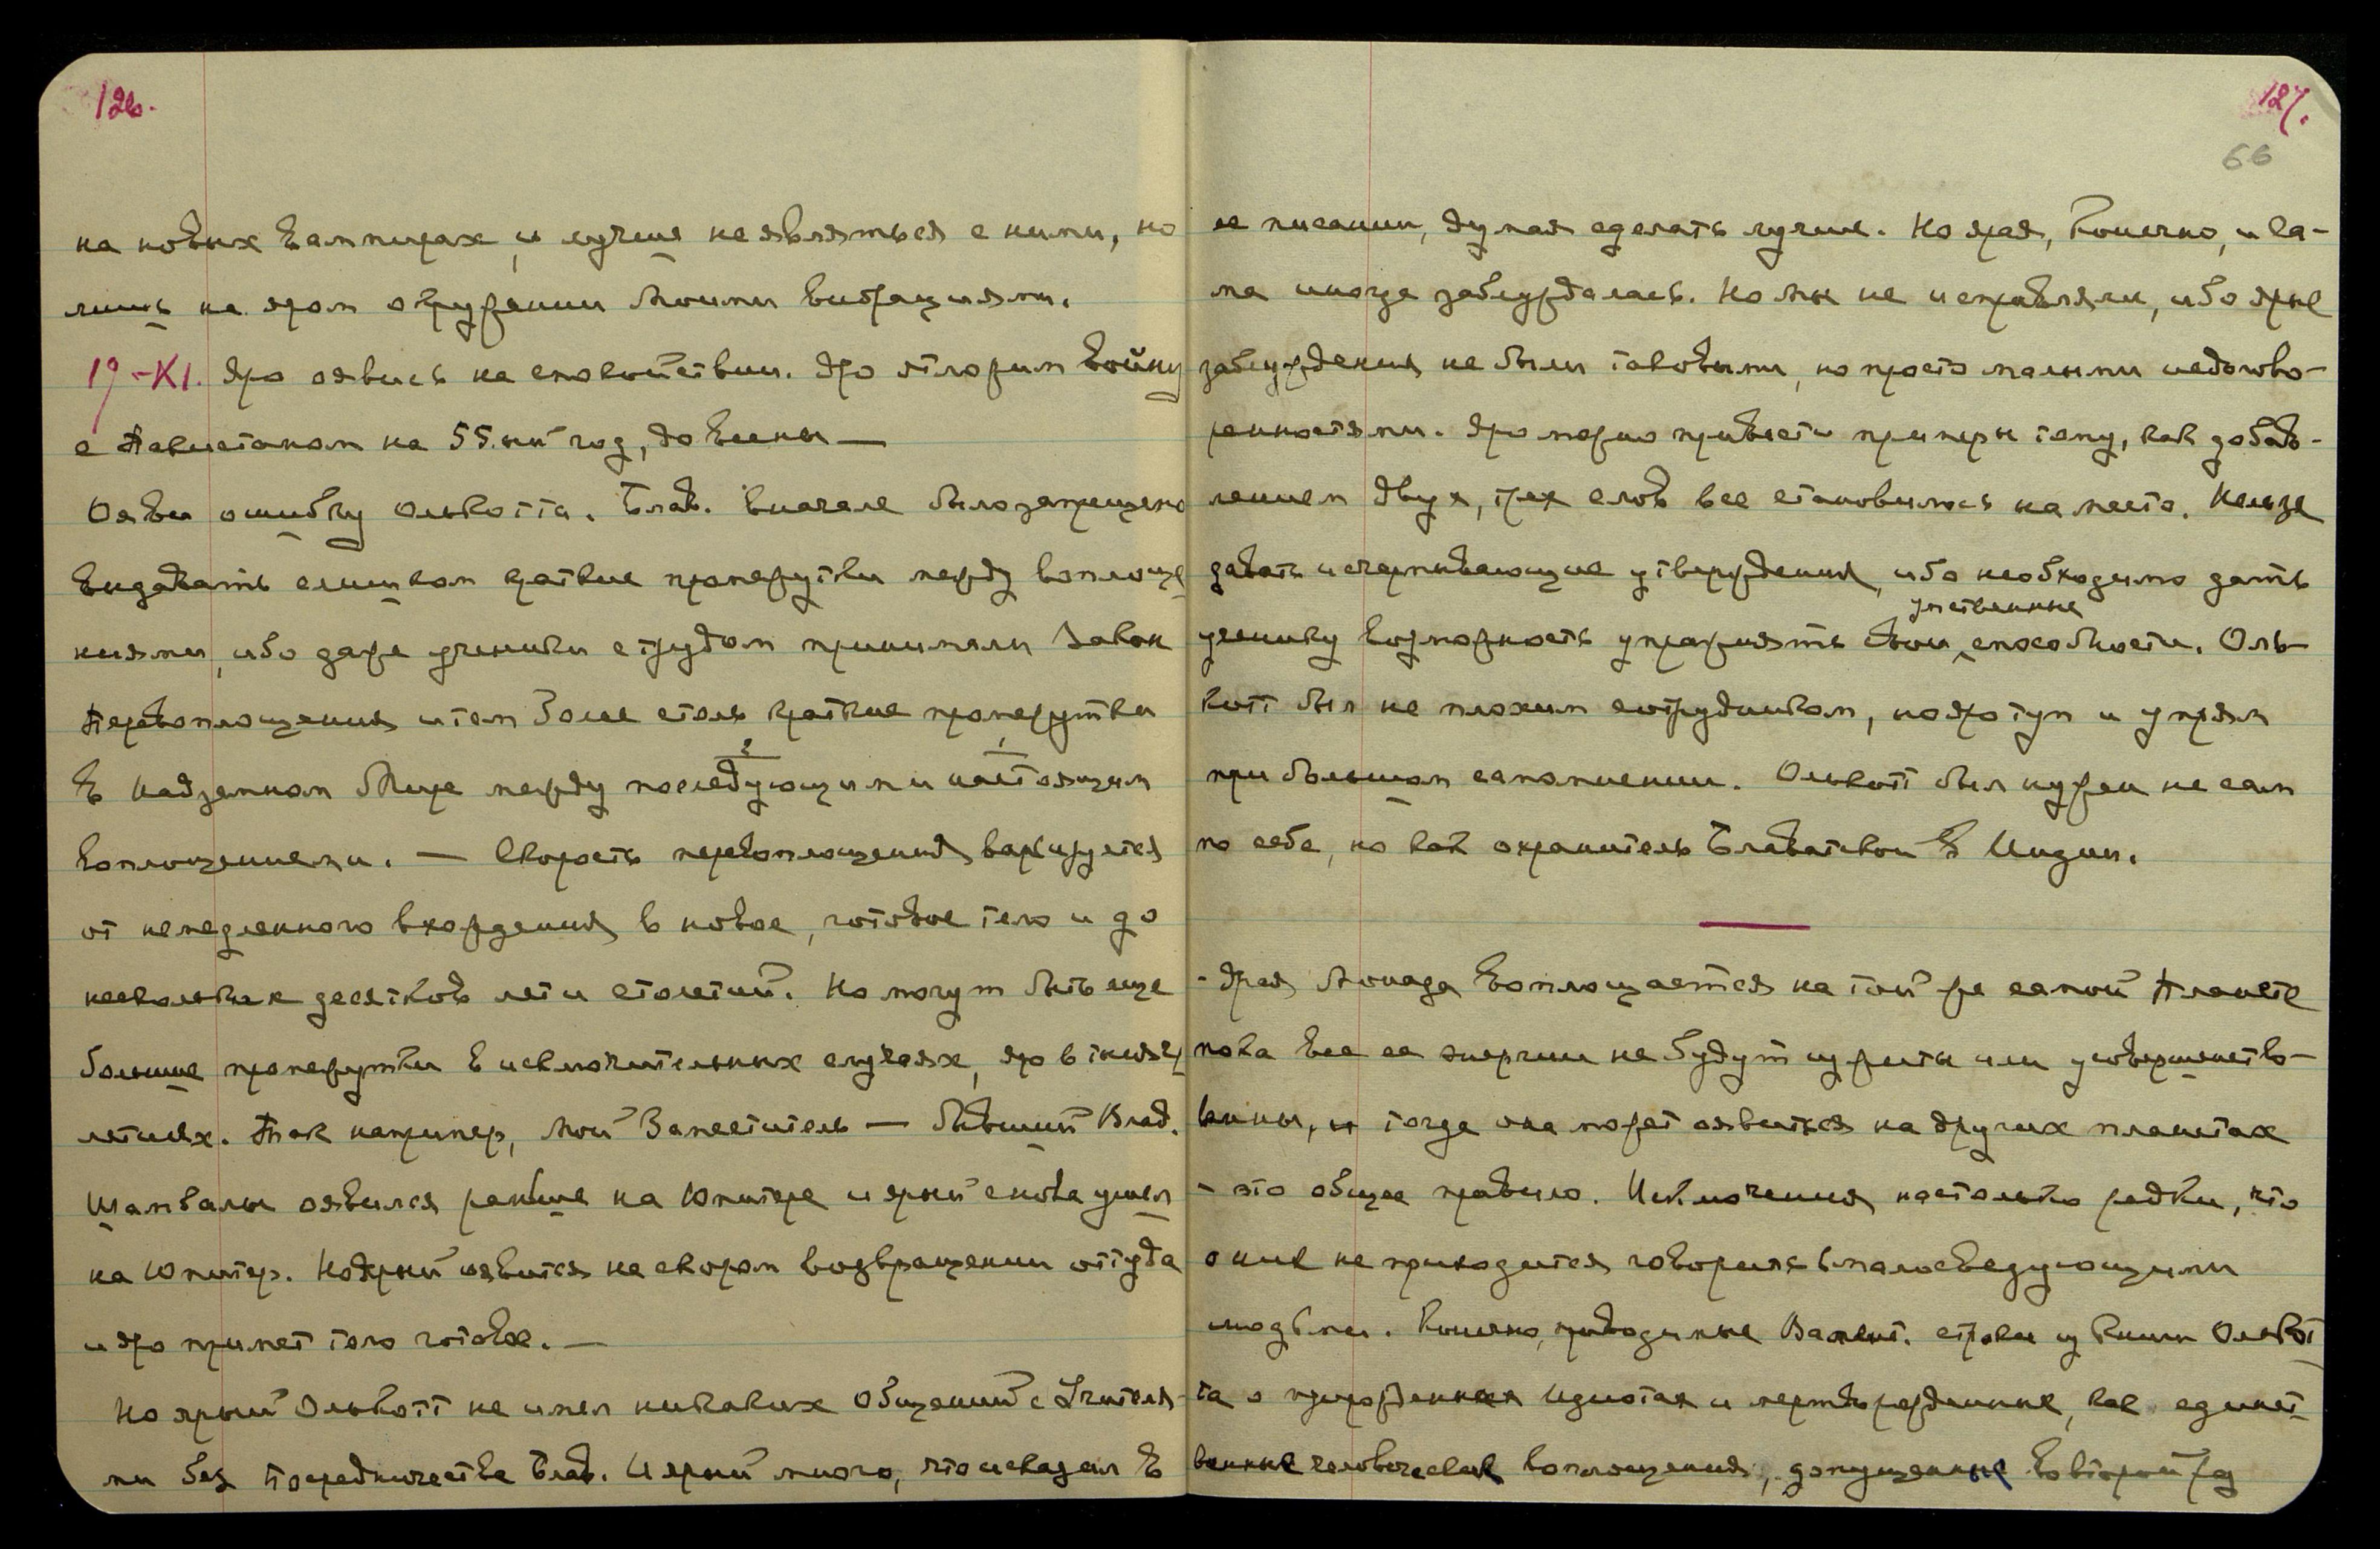 126.
на новых вампирах, и лучше не являться с ними, но
лишь на яром окружении Моими вибрациями.
19-XI. Яро оявись на спокойствии. Яро отложим войну
с Пакистаном на 55.ый год, до весны —
Оявы ошибку Олькотта. Блав. вначале было запрещено
выдавать слишком краткие промежутки между воплоще
ниями, ибо даже ученики с трудом принимали Закон
Перевоплощения и тем более столь краткие промежутки
2 1
в Надземном Мире между последующими и настоящим
воплощениями. — Скорость перевоплощения варьируется
от немедленного вхождения в новое, готовое тело и до
нескольких десятков лет и столетий. Но могут быть еще
большие промежутки в исключительных случаях, яро в тысяче
летиях. Так например, Мой Заместитель — бывший Влад.
Шамбалы оявился раньше на Юпитере и ярый снова ушел
на Юпитер. Но ярый оявится на скором возвращении оттуда
и яро примет тело готовое. —
Но ярый Олькотт не имел никаких Общений с Учителя-
ми без посредничества Блав. И ярый много, что исказил в
127.
66
ее писании, думая сделать лучше. Но ярая, конечно, и са-
ма иногда заблуждалась. Но мы не исправляли, ибо ярые
заблуждения не были таковыми, но просто малыми недогово-
ренностями. Яро можно привести примеры тому, как добав-
лением двух, трех слов все становилось на место. Нельзя
давать исчерпывающие утверждения, ибо необходимо дать
умственные
ученику возможность упражнять свои способности. Оль-
котт был не плохим сотрудником, но яро туп и упрям
при большом самомнении. Олькотт был нужен не сам
по себе, но как охранитель Блаватской в Индии.
- Ярая Монада воплощается на той же самой Планете
пока все ее энергии не будут изжиты или усовершенство-
ваны, и тогда она может оявиться на других планетах
- это общее правило. Исключения настолько редки, что
о них не приходится говорить с малосведующими
людьми. Конечно, приводимые Валент. строки из книги Олькот
та о прирожденных идиотах и мертворожденных, как единст
венные человеческие воплощения, допущенные во второй раз